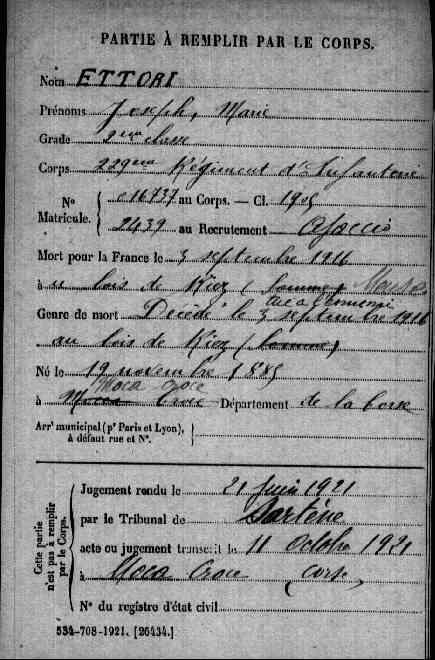 PARTIE À REMPLIR PAR LE CORPS.
Nom ETTORI
Prénoms Joseph, Marie
Grade 2eme classe
Corps 229eme Régiment d'Infanterie
N° Matricule. 016737 au Corps. — Cl. 1905
2439 au Recrutement Ajaccio
Mort pour la France le 3 septembre 1916
à u bois de Riez (Somme) Meuse
tué à l'ennemi
Genre de mort Décédé le 3 septembre 1916
au bois de Riez (Somme)
Né le 19 novembre 1885
Moca Croce
à Moca Croce Département de la Corse
Arrt municipal (pr Paris et Lyon),
à défaut rue et N°.
Cette partie n'est pas à remplir par le Corps.
Jugement rendu le 21 Juin 1921
par le Tribunal de Sartène
acte ou jugement transcrit le 11 Octobre 1921
à Moca Croce (Corse)
N° du registre d'état civil
534-708-1921. [26434.]